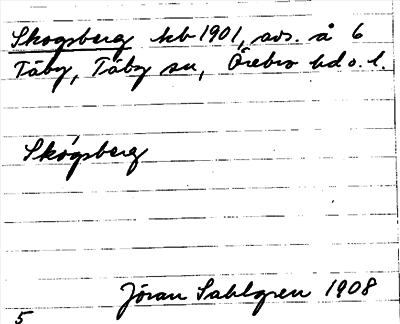 Skogsberg kb 1901, avs. å 6
Täby, Täby sn, Örebro hd o. l.
Skógsberg
Jöran Sahlgren 1908
5